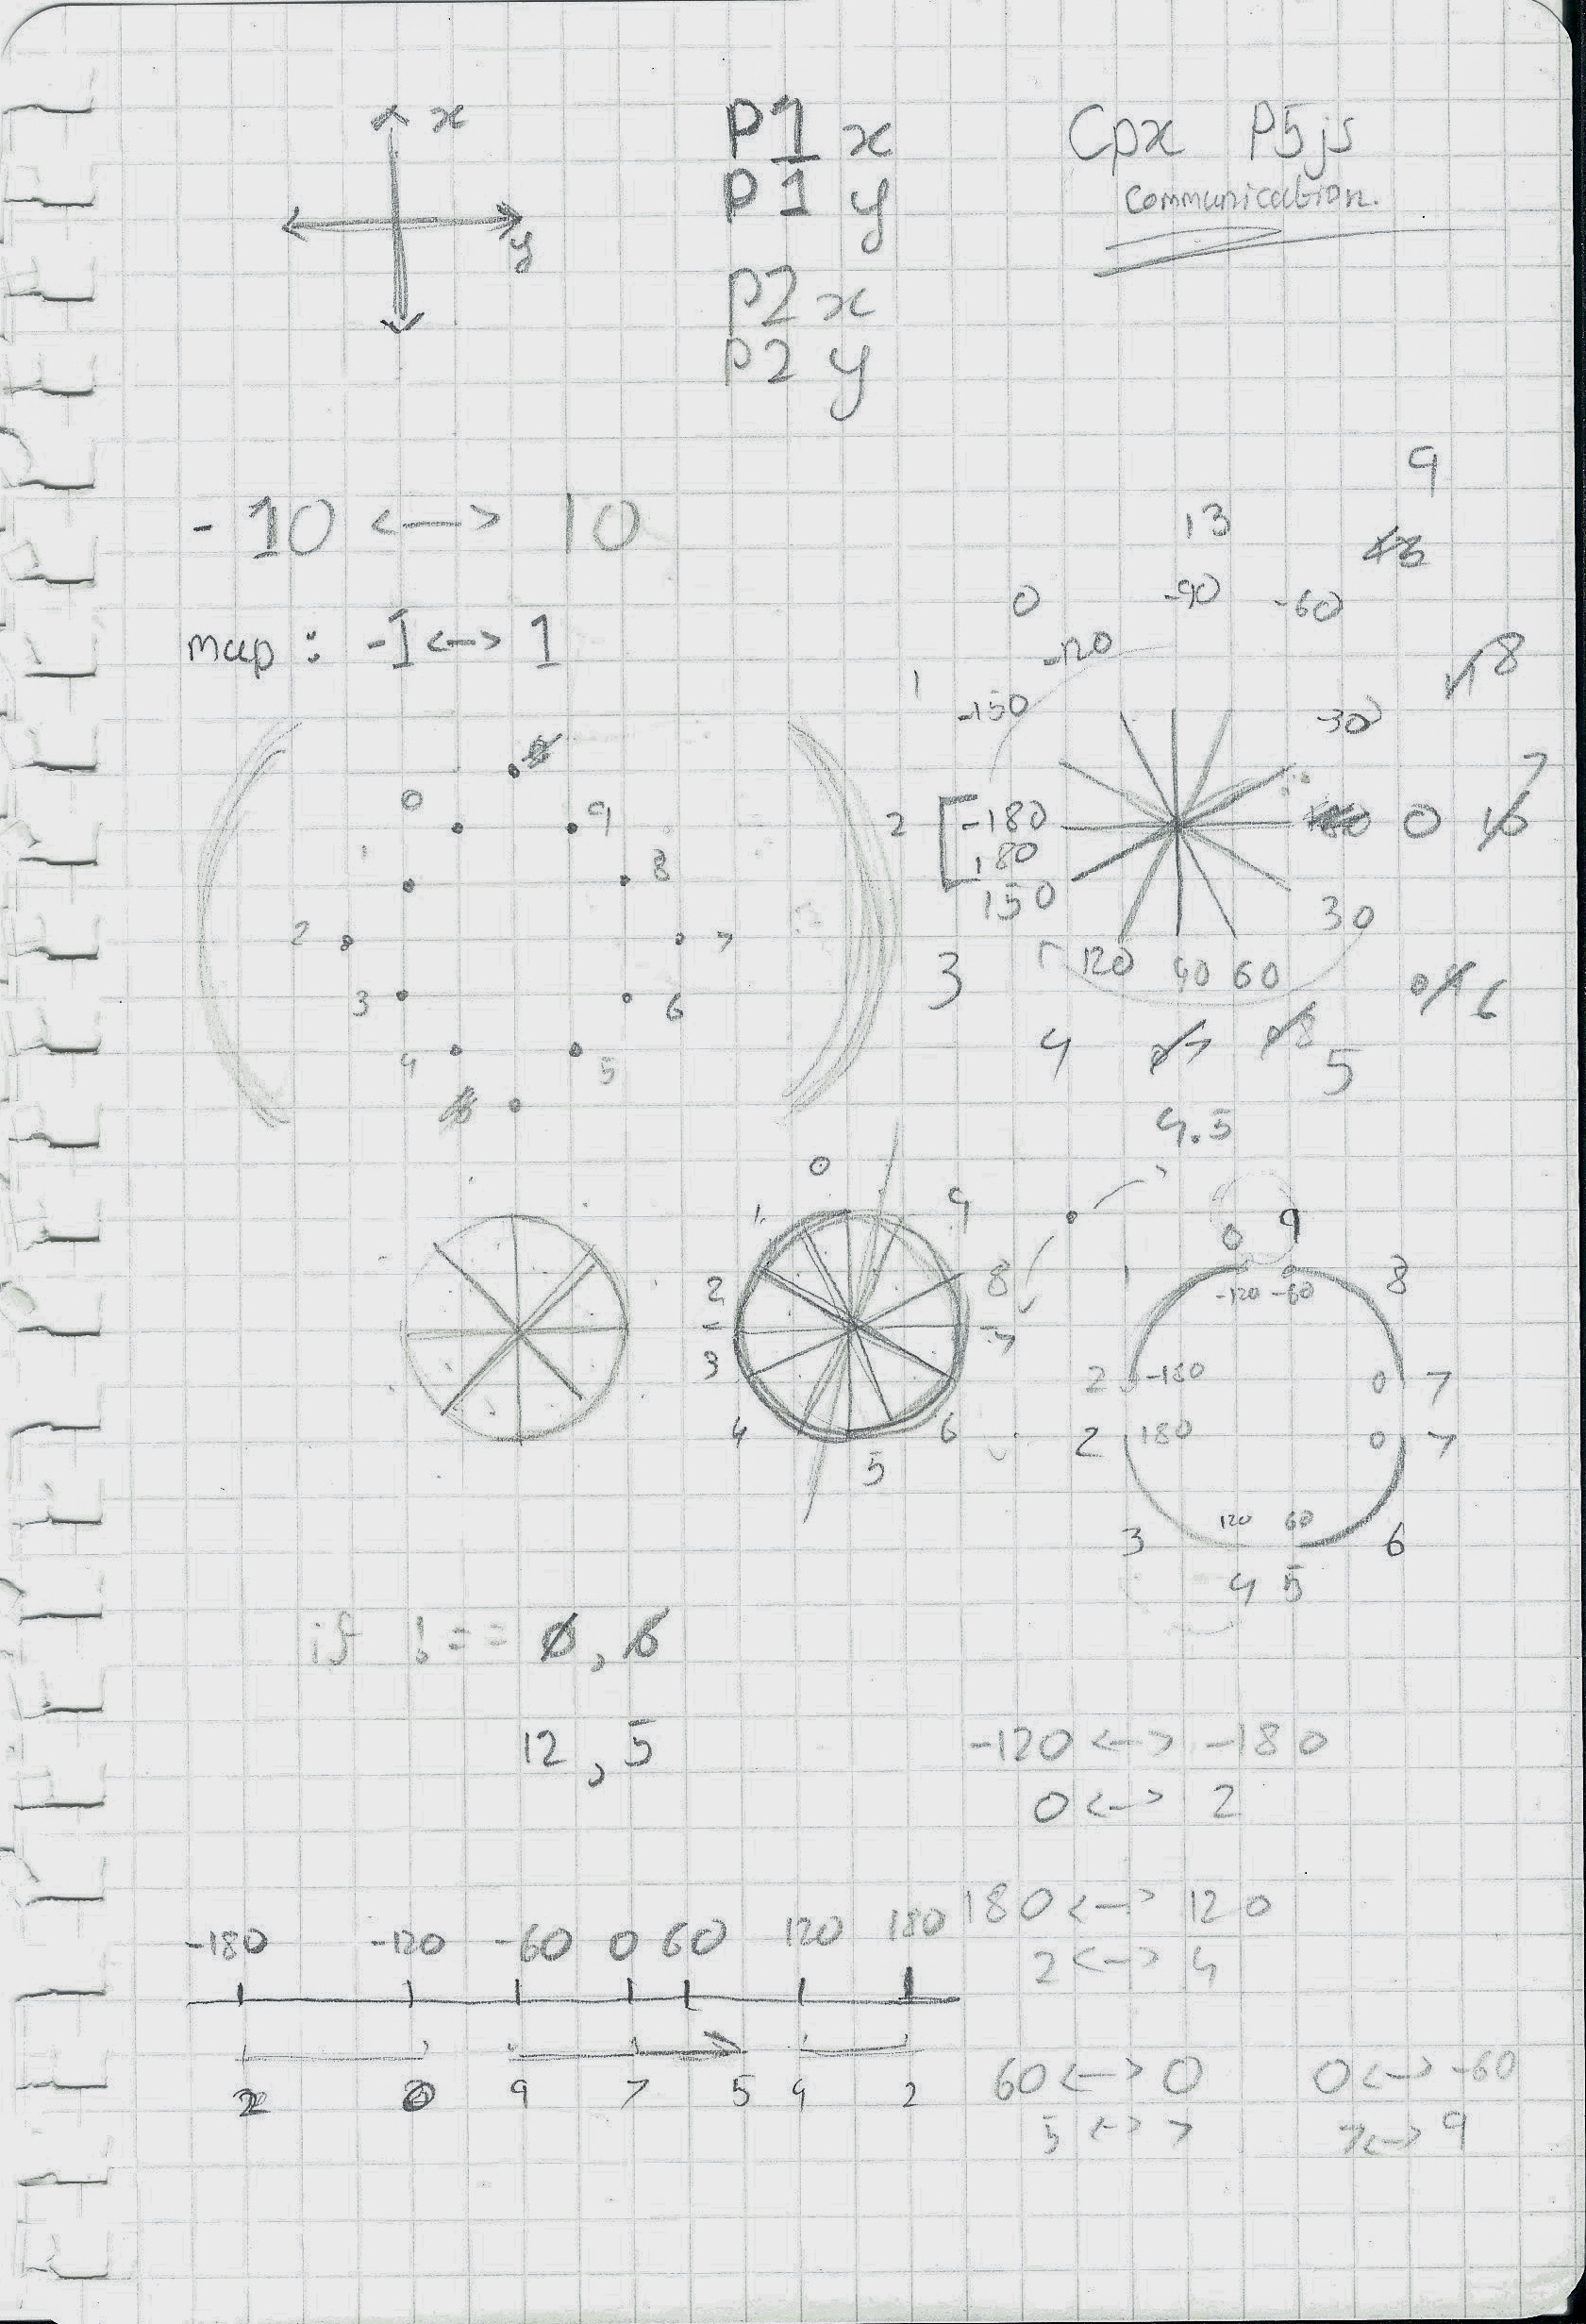 x
y
P1 x
P1 y
P2 x
P2 y
Cpx P5js
Communication.
-10 <-> 10
map : -1 <-> 1
9
13
0 -90 -60
-120
8
1
-150 -30
2 -180 0 7
180
150 30
3 120 90 60
6
4
5
4.5
0 9
1 8
2 7
3 6
4 5
0
1 9
2 8
- 7
3
4 6
5
0 9
1 -120 -60 8
2 -180 0 7
2 180 0 7
3 120 60 6
4 5
if !== 0, 6
12, 5
-120 <-> -180
0 <-> 2
180 <-> 120
2 <-> 4
60 <-> 0
5 <-> 7
0 <-> -60
7 <-> 9
-180 -120 -60 0 60 120 180
2 0 9 7 5 4 2